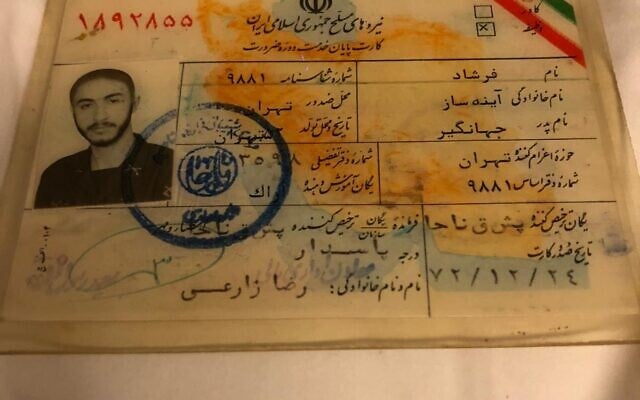 نیروهای مسلح جمهوری اسلامی ایران
کارت پایان خدمت دوره ضرورت
۱۸۹۲۸۵۵
نام فرشاد
شماره شناسنامه ۹۸۸۱
نام خانوادگی آینه ساز
محل صدور تهران
نام پدر جهانگیر
تاریخ و محل تولد تهران
حوزه اعزام کننده تهران
شماره دفتر تفضیلی
شماره دفتر اساس ۹۸۸۱
یگان آموزش دهنده
یگان ترخیص کننده پش ق ناحا
فرمانده یگان سازمان ترخیص کننده پش ق ناحا
تاریخ صدور کارت
۷۲/۱۲/۲۴
درجه پاسدار
نام و نام خانوادگی : رضا زارعی